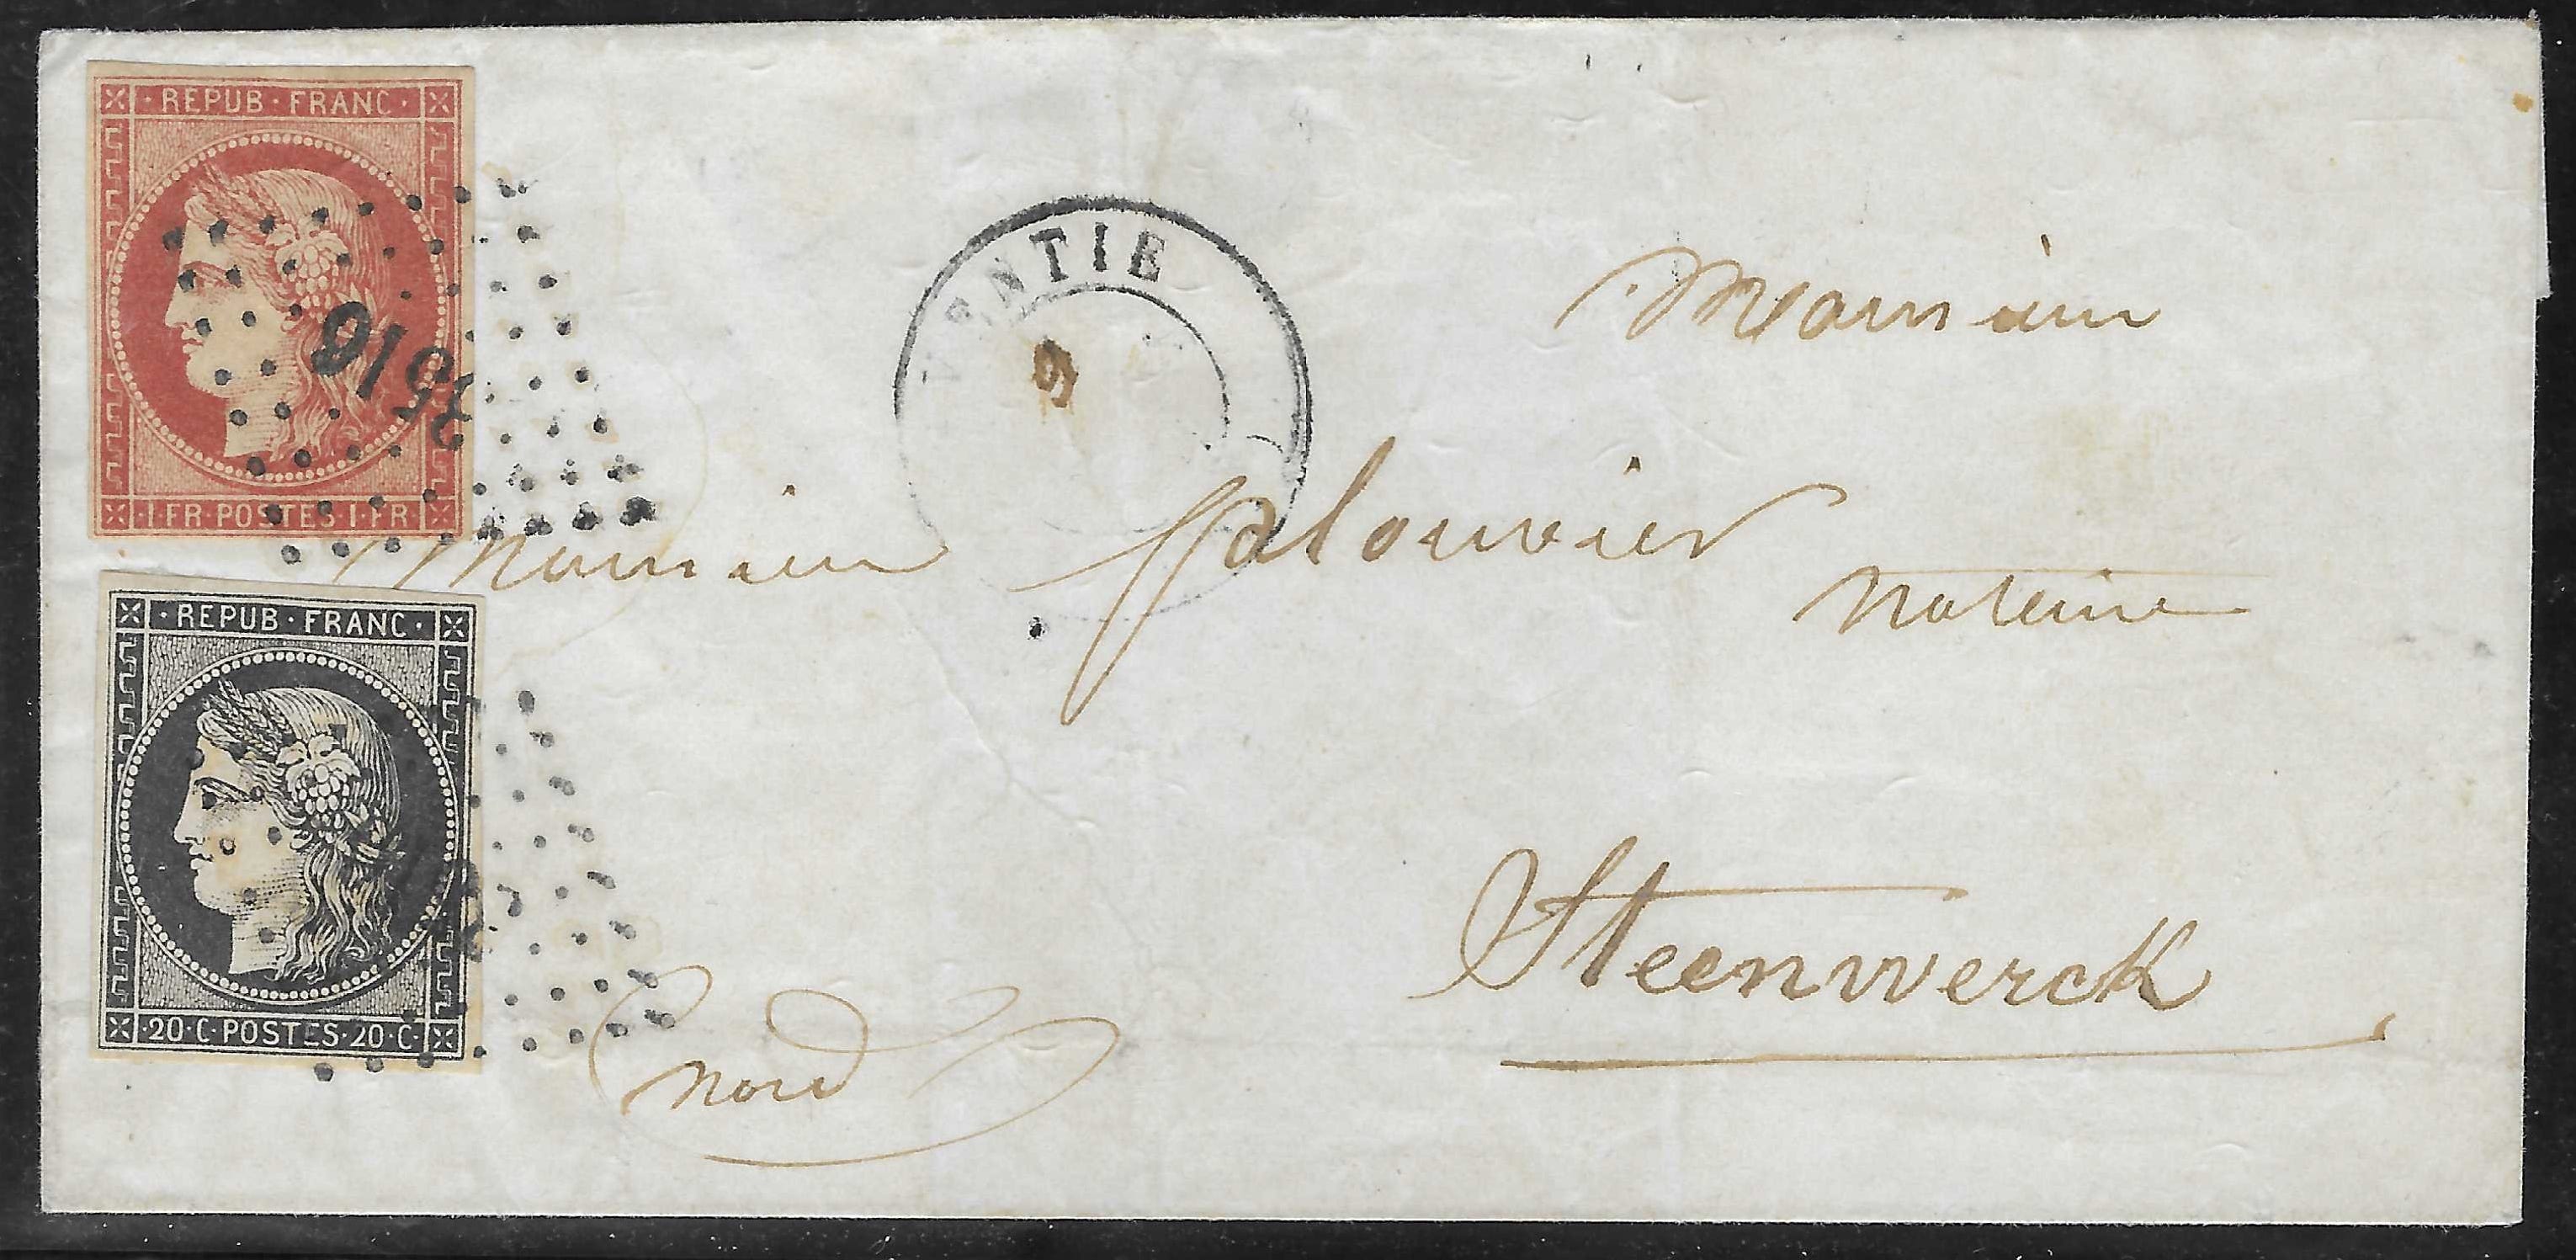 · REPUB · FRANC ·
3516
· 1 · FR · POSTES · 1 · FR ·
VENTIE
9
Monsieur
Monsieur Plouvier
notaire
· REPUB · FRANC ·
· 20 · C · POSTES · 20 · C ·
Steenwerck
nord